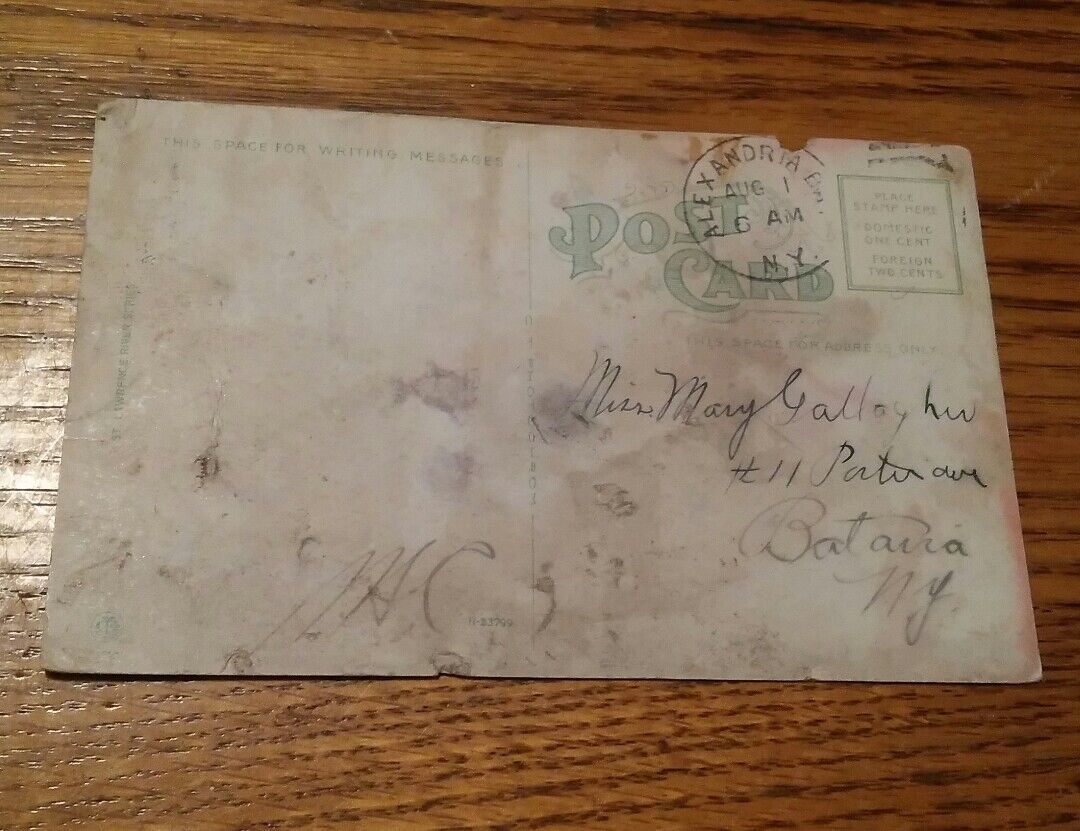 THIS SPACE FOR WRITING MESSAGES
ST. LAWRENCE RIVER SERIES
POST CARD
ALEXANDRIA BAY.
AUG 1
6 AM
N.Y.
PLACE
STAMP HERE
DOMESTIC
ONE CENT
FOREIGN
TWO CENTS
THIS SPACE FOR ADDRESS ONLY.
Miss. Mary Gallagher
# 11 Porter ave
Batavia
NY.
R-23799